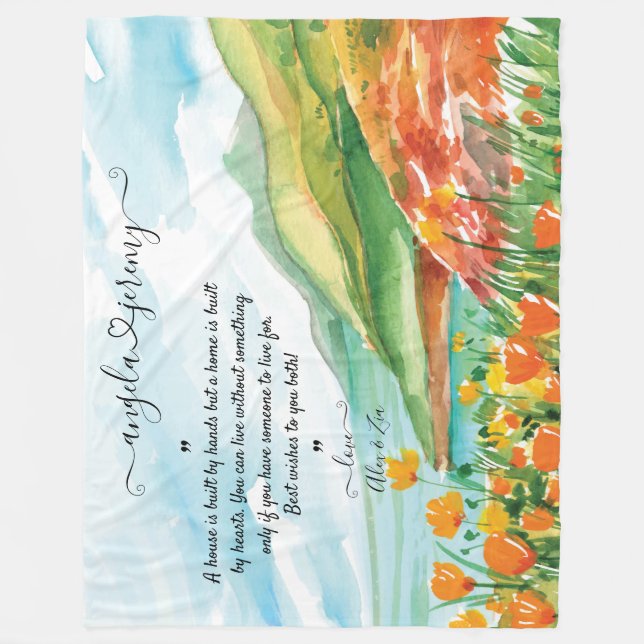 angela jeremy
"
A house is built by hands but a home is built
by hearts. You can live without something
only if you have someone to live for.
Best wishes to you both!
"
love
Alex & Zia